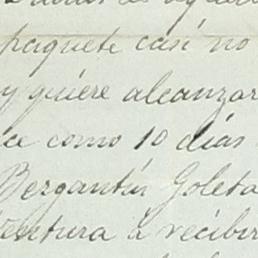 paquete casi no
y quiere alcanzar
ce como 10 dias
Bergantin Goleta
ventura á recibir